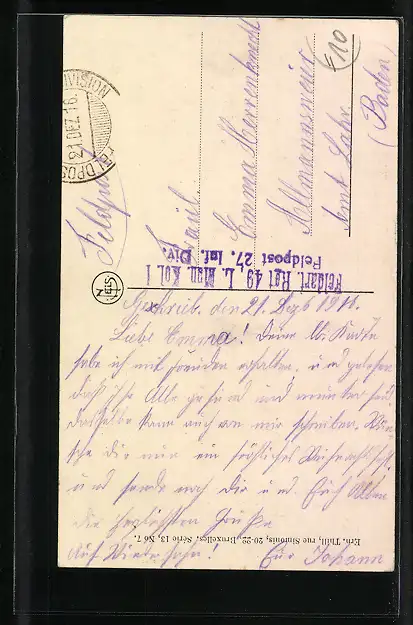 Feldpost
21.DEZ.16.
F10
Fräul.
Emma Herrenknecht
Allmannsweier
Amt Lahr.
(Baden)
Feldart. Rgt 49, L. Mun. Kol. I
Feldpost 27. Inf. Div.
NELS
Geschrieb. den 21. Dezb 1916.
Liebe Emma! Deine lb. Karte
habe ich mit freuden erhalten, und gesehen
daß Ihr Alle gesund und munter seid,
dasselbe kann auch von mir schreiben. Wün-
sche dir nun ein fröhliches Weihnachtsfest
und sende noch dir und Euch Allen
die herzlichsten Grüße
Auf Wiedersehn! Eur Johann
Ern. Thill, rue Simonis, 20-22, Bruxelles, Série 13, No 7.